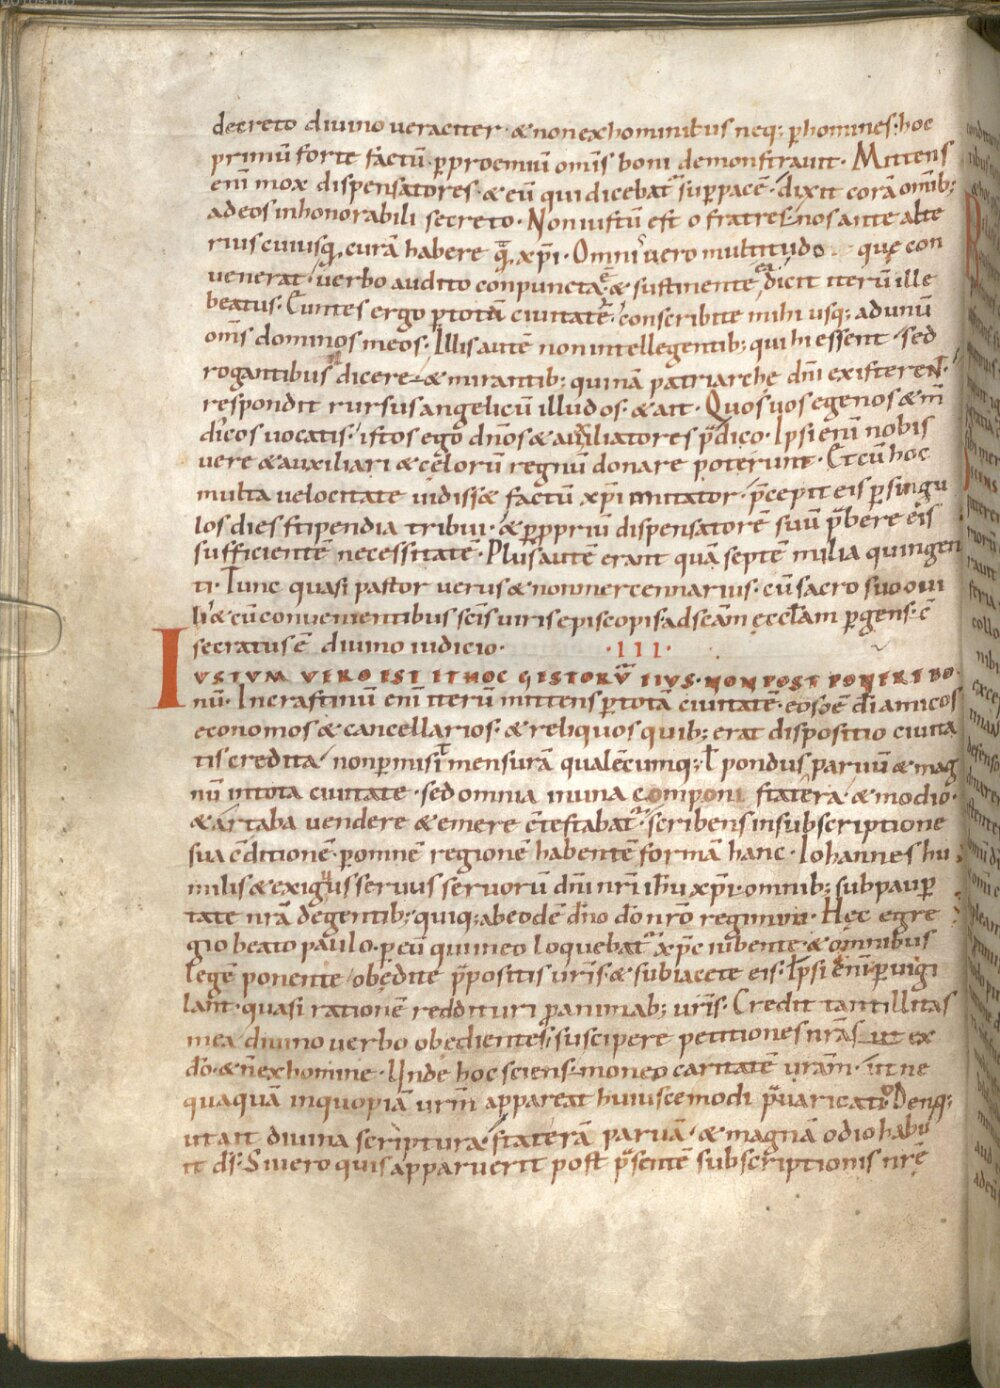 decreto diuino ueraciter · & non ex hominibus neq; p̱ homines · hoc
primū forte factū · p̱ proemiū om̄is boni demonstrauit · Mittens
eni mox dispensatores · & eū qui dicebat᷑ sup̱ pacē · dixit corā omīb;
ad eos in honorabili secreto · Non iustū est o fratres nos ante alte
rius cuiusq, curā habere quā xp̄i · Omni uero multitudo quę con
uenerat uerbo audito conpuncta & sustinente dicit iterū ille
beatus · Euntes ergo p̱ totā ciuitatē · conscribite mihi usq; ad unū
om̄s dominos meos · Illis autē non intellegentib; qui hi essent · sed
rogantibus dicere & mirantib; quinā patriarchę dn̄i existerent ·
respondit rursus angelicū illud os · & ait · Quos uos egenos & m̄
dicos uocatis · istos ego dn̄os & auxiliatores p̄dico · Ipsi enī nobis
uere & auxiliari & cęlorū regnū donare poterunt · Et cū hoc
multa uelocitate uidiss& factū xp̄i imitator · p̄cepit eis p̱ singu
los dies stipendia tribui · & p̱ p̱priū dispensatorē suū p̄bere eis
sufficientē necessitatē · Plus autē erant quā septē milia quingen
ti · Tunc quasi pastor uerus & non mercennarius · cū sacro suo oui
li & cū conuenientibus sc̄is uiris episcopis ad sc̄am ęccl̄am p̱gens · c̄
secratus ē diuino iudicio · · III ·
IVSTVM VERO EST IT HOC GESTORV̄ EIVS · NON POST PONERE BO·
nū · In crastinū enī iterū mittens p̱ totā ciuitatē · eosdē dī amicos
economos & cancellarios · & reliquos quib; erat dispositio ciuita
tis credita non p̱misit mensurā qualēcumq; l̄ pondus paruū & mag
nū in tota ciuitate · sed omnia in una componi statera & modio ·
& artaba uendere & emere c̄testabat᷑ · scribens in subscriptione
sua c̄ditionē · p̱ omnē regionē habentē formā hanc · Iohannes hu
milis & exiguus seruus seruorū dn̄i nr̄i ih̄u xp̄i · omnib; sub paup̱
tate nr̄a degentib; quiq; ab eodē dn̄o dō nr̄o regimini · Hęc egre
gio beato paulo · p̱ eū qui in eo loquebat᷑ xp̄c iubente & omnibus
legē ponente obędite p̄positis ur̄is & subiacete eis · Ipsi enī p̱uigi
lant · quasi rationē reddituri p̱ animab; ur̄is · Credit tantillitas
mea diuino uerbo obędientes suscipere petitiones nr̄as ut ex
dō · & n̄ ex homine · Unde hoc sciens moneo caritatē ur̄am · ut ne
quaquā in quopiā ur̄m appareat huiuscemodi p̄uaricatio Denq;
ut ait diuina scriptura staterā paruā · & magnā odio habu
it ds̄ · Si uero quis apparuerit post p̄sentē subscriptionis nr̄ę